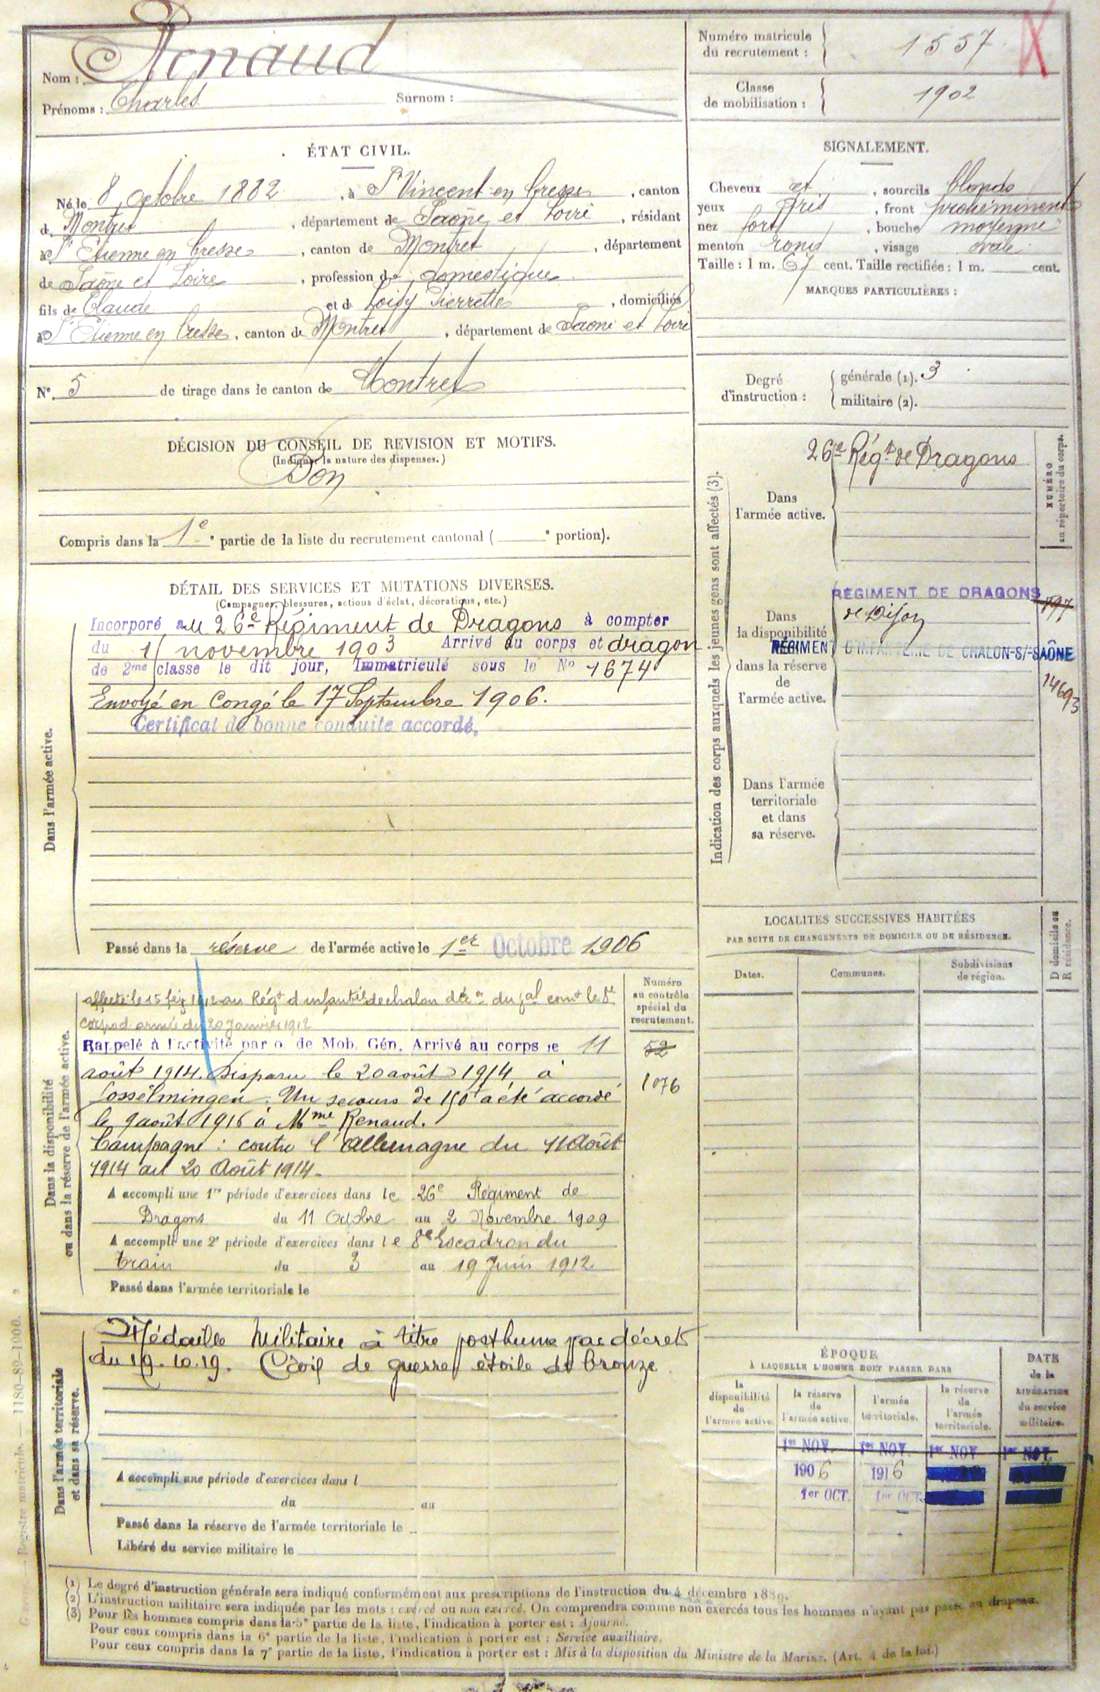 Nom : Renaud
Prénoms : Charles Surnom :
Numéro matricule
du recrutement : 1557
Classe
de mobilisation : 1902
ÉTAT CIVIL.
Né le 8 octobre 1882, à St Vincent en Bresse, canton
d Montret, département de Saône et Loire, résidant
à St Etienne en Bresse, canton de Montret, département
de Saône et Loire, profession de domestique
fils de Claude et d Loisy Pierrette, domiciliés
à St Etienne en Bresse, canton de Montret, département de Saône et Loire
N° 5 de tirage dans le canton de Montret
SIGNALEMENT.
Cheveux et, sourcils blonds
yeux gris, front proéminent
nez fort, bouche moyenne
menton rond, visage ovale
Taille : 1 m. 67 cent. Taille rectifiée : 1 m. cent.
MARQUES PARTICULIÈRES :
Degré
d'instruction :
générale (1). 3
militaire (2).
DÉCISION DU CONSEIL DE REVISION ET MOTIFS.
(Indiquer la nature des dispenses.)
Bon
Compris dans la 1e partie de la liste du recrutement cantonal ( e portion).
Indication des corps auxquels les jeunes gens sont affectés (3).
NUMÉRO
au répertoire du corps.
26e Régt de Dragons
Dans
l'armée active.
Dans
la disponibilité
ou
dans la réserve
de
l'armée active.
RÉGIMENT DE DRAGONS
de Dijon
RÉGIMENT D'INFANTERIE DE CHALON-S/-SAÔNE
14693
Dans l'armée
territoriale
et dans
sa réserve.
DÉTAIL DES SERVICES ET MUTATIONS DIVERSES.
(Campagnes, blessures, actions d'éclat, décorations, etc.)
Dans l'armée active.
Incorporé au 26e Régiment de Dragons à compter
du 15 novembre 1903 Arrivé au corps et dragon
de 2me classe le dit jour, Immatriculé sous le N° 1674
Envoyé en Congé le 17 Septembre 1906.
Certificat de bonne conduite accordé.
Passé dans la réserve de l'armée active le 1er Octobre 1906
LOCALITÉS SUCCESSIVES HABITÉES
PAR SUITE DE CHANGEMENTS DE DOMICILE OU DE RÉSIDENCE.
Dates. Communes. Subdivisions
de région.
D domicile ou
R résidence.
Dans la disponibilité
ou dans la réserve de l'armée active.
Numéro
au contrôle
spécial du
recrutement.
52
1076
affecté le 15 fév 1912 au Régt d'infantrie de chalon don du gal comt le 8e
corps d'armée du 20 Janvier 1912
Rappelé à l'activité par o. de Mob. Gén. Arrivé au corps le 11
août 1914. Disparu le 20 août 1914 à
Losselmingen. Un secours de 150 a été accordé
le 9 août 1916 à Mme Renaud.
Campagne : contre l'Allemagne du 11 Août
1914 au 20 Août 1914.
A accompli une 1re période d'exercices dans le 26e Régiment de
Dragons du 11 Octobre au 2 Novembre 1909
A accompli une 2e période d'exercices dans le 8e Escadron du
train du 3 au 19 Juin 1912
Passé dans l'armée territoriale le
Dans l'armée territoriale
et dans sa réserve.
Médaille Militaire à titre posthume par décret
du 19.10.19. Croix de guerre étoile de bronze.
A accompli une période d'exercices dans l
du au
Passé dans la réserve de l'armée territoriale le
Libéré du service militaire le
ÉPOQUE
À LAQUELLE L'HOMME DOIT PASSER DANS
la
disponibilité
de
l'armée active.
la réserve
de
l'armée active.
l'armée
territoriale.
la réserve
de
l'armée
territoriale.
DATE
de la
LIBÉRATION
du service
militaire.
1er NOV. 1er NOV. 1er NOV 1er NOV.
1906 1916
1er OCT. 1er OCT.
Registre matricule. — 1180-89-1900.
(1) Le degré d'instruction générale sera indiqué conformément aux prescriptions de l'instruction du 4 décembre 1889.
(2) L'instruction militaire sera indiquée par les mots : exercé ou non exercé. On comprendra comme non exercés tous les hommes n'ayant pas passé au drapeau.
(3) Pour les hommes compris dans la 5e partie de la liste, l'indication à porter est : Ajourné.
Pour ceux compris dans la 6e partie de la liste, l'indication à porter est : Service auxiliaire.
Pour ceux compris dans la 7e partie de la liste, l'indication à porter est : Mis à la disposition du Ministre de la Marine. (Art. 4 de la loi.)